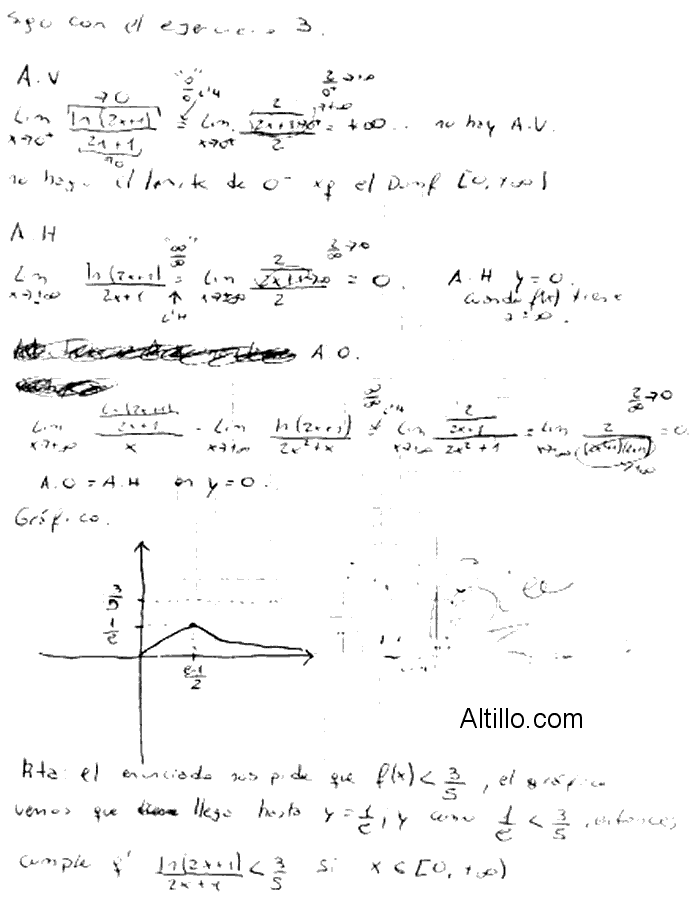 Sigo con el ejercicio 3.
A.V
Lim x→0⁺ ln(2x+1)/(2x+1) = Lim x→0⁺ (2/(2x+1))/2 = +∞ no hay A.V.
no hago el límite de 0⁻ xq el Domf [0,+∞)
A.H
Lim x→+∞ ln(2x+1)/(2x+1) "∞/∞" = L'H Lim x→+∞ (2/(2x+1))/2 = 0. 2/∞→0 A.H y=0.
cuando f(x) tiene
a ±∞.
A.O.
Lim x→+∞ (ln(2x+1)/(2x+1))/x = Lim x→+∞ ln(2x+1)/(2x²+x) ∞/∞ = L'H Lim x→+∞ (2/(2x+1))/(2x²+1) = Lim x→+∞ 2/((2x²+1)(2x+1)) = 0. 2/∞→0
A.O = A.H en y=0.
Gráfico.
3/5
1/e
e-1/2
Altillo.com
Rta: el enunciado nos pide que f(x) < 3/5, el gráfico
vemos que llega hasta y = 1/e, y como 1/e < 3/5, entonces
cumple q' ln(2x+1)/(2x+1) < 3/5 si x ∈ [0,+∞)